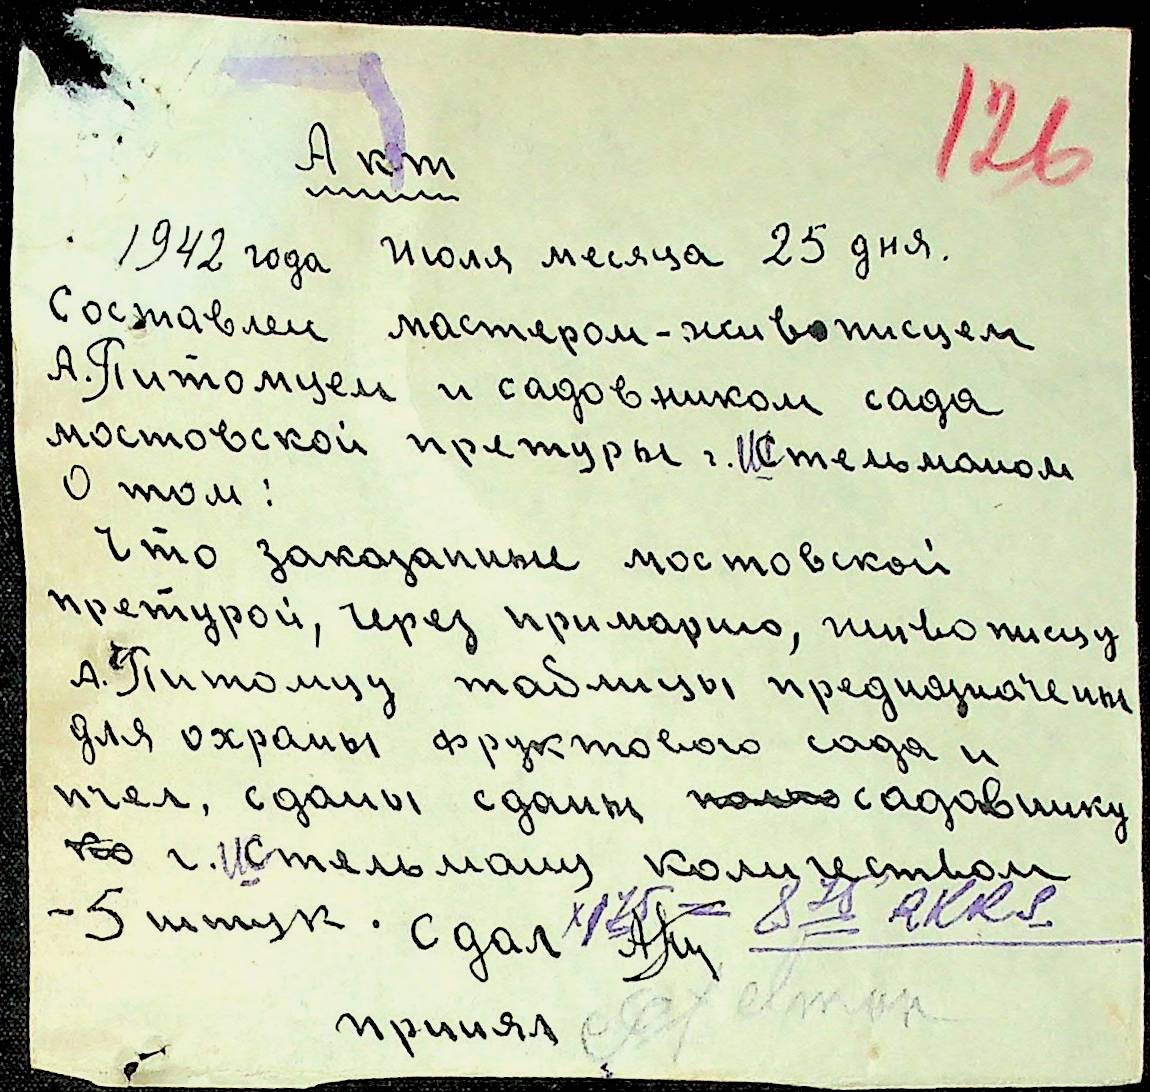 126
Акт
1942 года Июля месяца 25 дня.
Составлен мастером-живописцем
А.Питомцем и садовником сада
мостовской претуры г.Штельманом
О том:
Что заказанные мостовской
претурой, через примарию, живописцу
А.Питомцу таблицы предназначены
для охраны фруктового сада и
пчел, сданы сданы садавнику
г.Штельману количеством
-5 штук. x175 = 8 75 RKKS
Сдал
принял